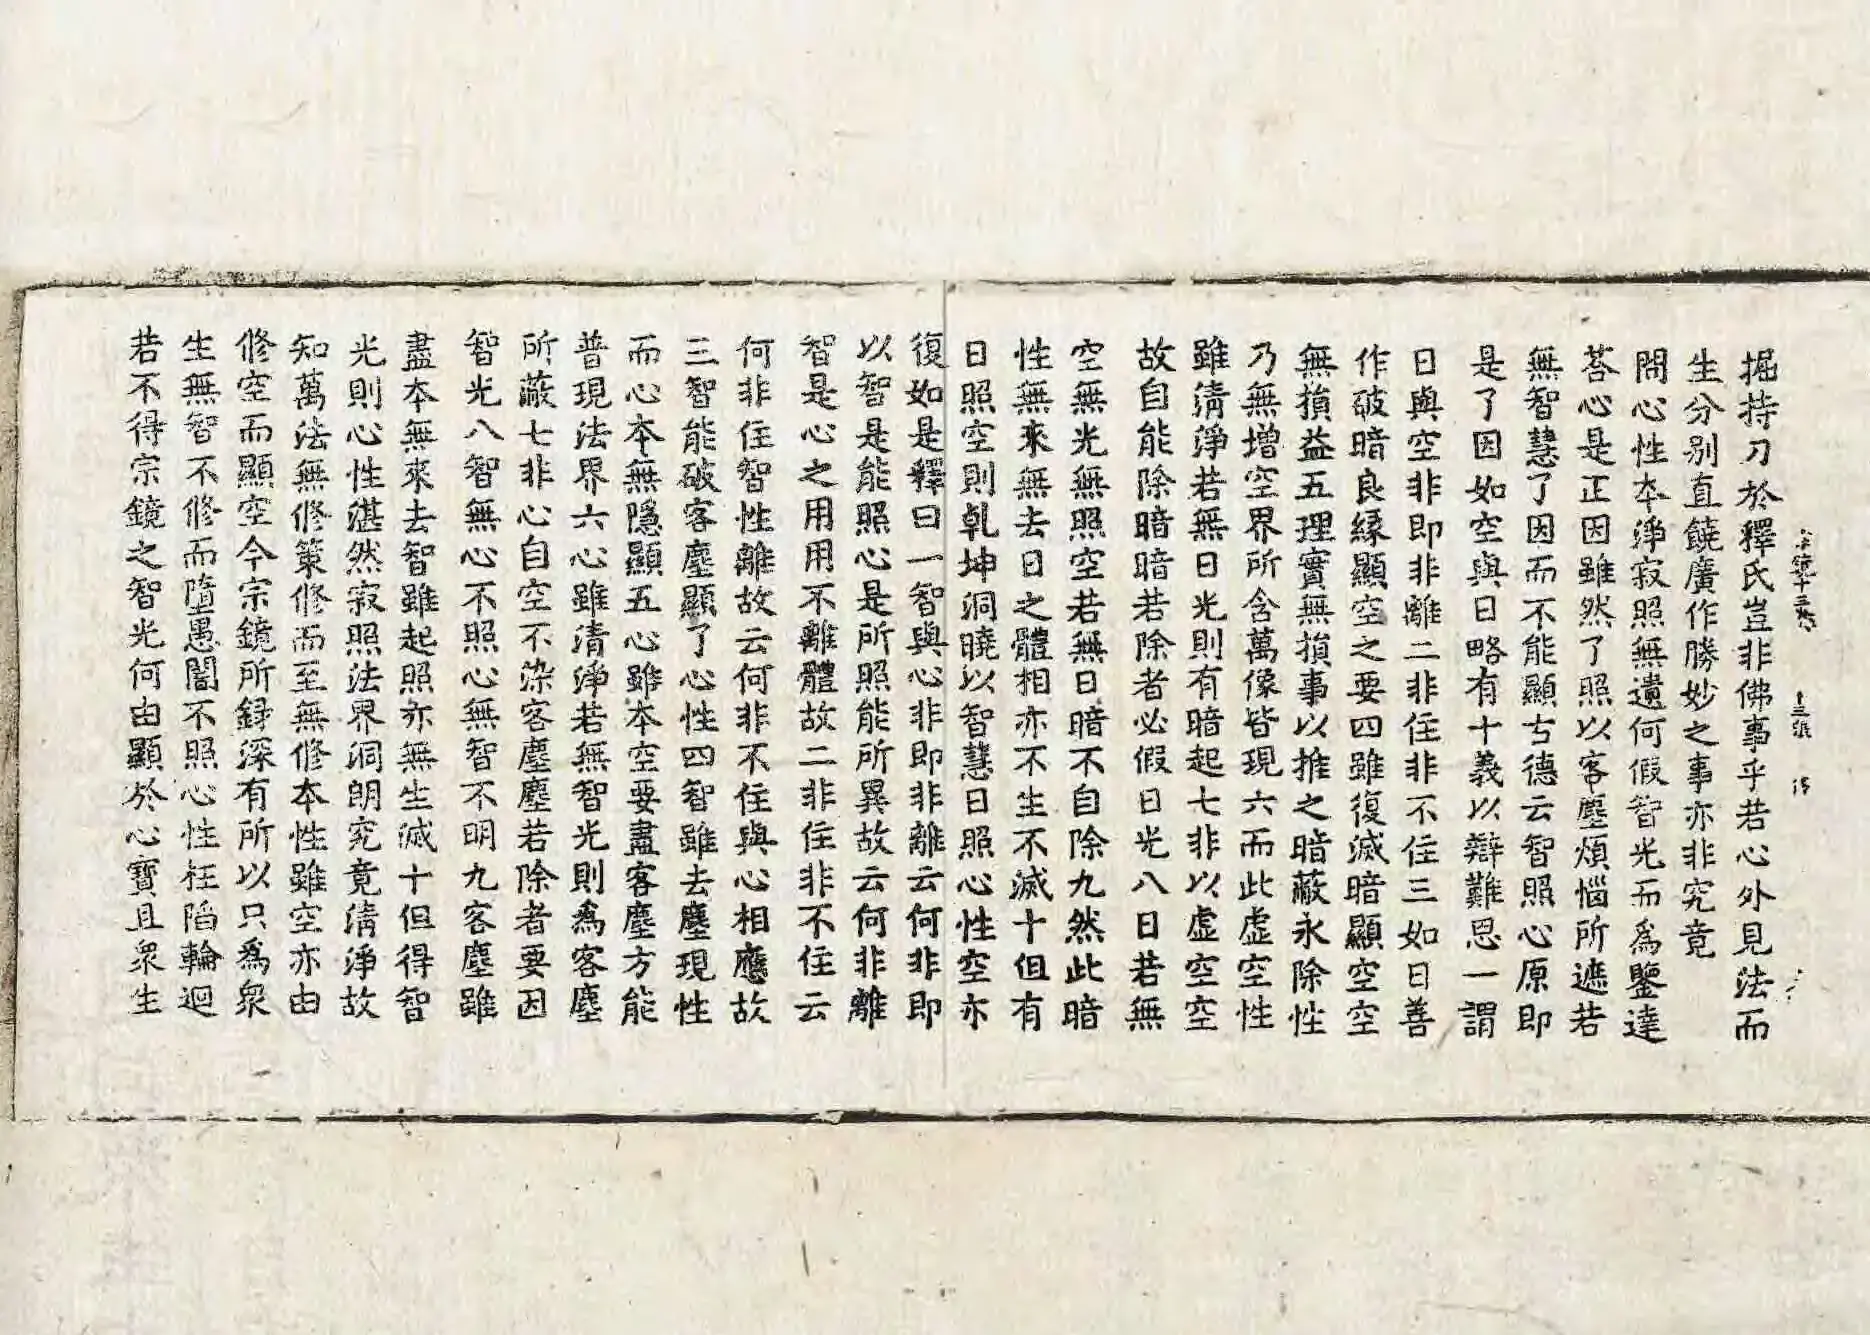 掘持刀於釋氏豈非佛事乎若心外見法而
生分別直饒廣作勝妙之事亦非究竟
問心性本淨寂照無遺何假智光而為鑒達
荅心是正因雖然了照以客塵煩惱所遮若
無智慧了因而不能顯古德云智照心原即
是了因如空與日略有十義以辯難思一謂
日與空非即非離二非住非不住三如日善
作破暗良緣顯空之要四雖復滅暗顯空空
無損益五理實無損事以推之暗蔽永除性
乃無增空界所含萬像皆現六而此虛空性
雖清淨若無日光則有暗起七非以虛空空
故自能除暗暗若除者必假日光八日若無
空無光無照空若無日暗不自除九然此暗
性無來無去日之體相亦不生不滅十但有
日照空則乹坤洞曉以智慧日照心性空亦
復如是釋曰一智與心非即非離云何非即
以智是能照心是所照能所異故云何非離
智是心之用用不離體故二非住非不住云
何非住智性離故云何非不住與心相應故
三智能破客塵顯了心性四智雖去塵現性
而心本無隱顯五心雖本空要盡客塵方能
普現法界六心雖清淨若無智光則為客塵
所蔽七非心自空不染客塵塵若除者要因
智光八智無心不照心無智不明九客塵雖
盡本無來去智雖起照亦無生滅十但得智
光則心性湛然寂照法界洞朗究竟清淨故
知萬法無修策修而至無修本性雖空亦由
修空而顯空今宗鏡所録深有所以只為眾
生無智不修而墮愚闇不照心性枉陷輪迴
若不得宗鏡之智光何由顯於心寶且眾生